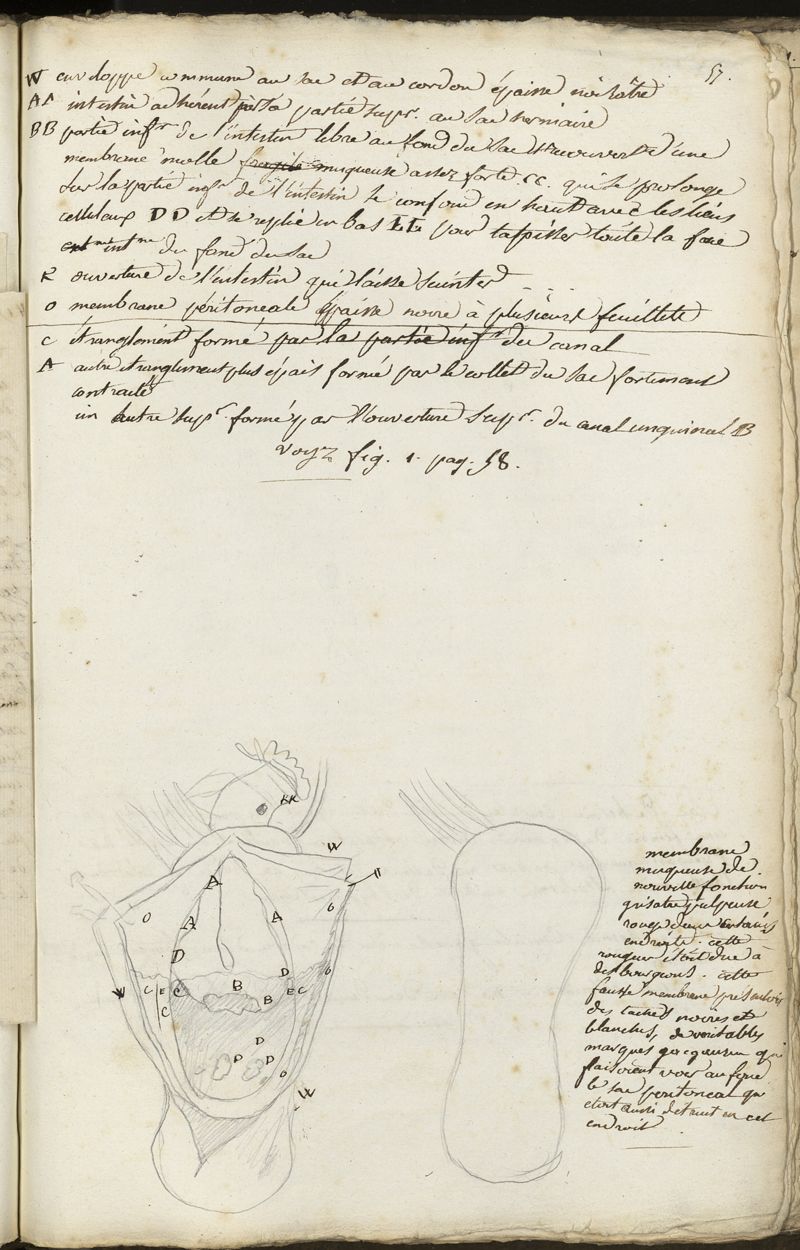 57.
W enveloppe commune au sac et au cordon épaisse noirâtre
AA intestin adhérent par sa partie supr. au sac herniaire
BB partie infr de l'intestin libre au fond du sac et recouvert d'une
membrane molle fragile muqueuse assez forte CC. qui se prolonge
sur la partie infr de l'intestin se confond en haut avec les liens
celluleux DD et se replie en bas EE pour tapisser toute la face
intne du fond du sac
K ouverture de l'intestin qui laisse suinter . . .
O membrane péritoneale épaisse noire à plusieurs feuillets
C étranglement formé par la partie infr du canal
A autre étranglement plus épais formé par le collet du sac fortement
contracté
un autre supr. formé par l'ouverture supr. du canal inguinal B
voyez fig. 1. pag. 58.
KK
W
A
O
A
A
O
D
D
O
W
C
E
C
B
B
E C
C
D
D
D
O
W
membrane
muqueuse de
nouvelle fonction
grisatre pulpeuse
rouge dans certains
endroits. cette
rougeur étoit due à
des bourgeons. cette
fausse membrane présentoit
des taches noires et
blanches, de veritables
marques qui
faisoient voir au fond
le sac peritoneal qui
etoit aussi detruit en cet
endroit